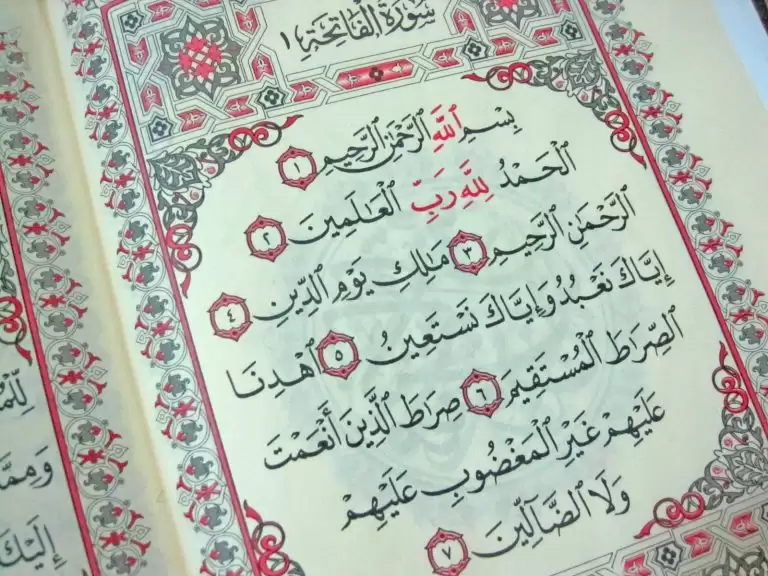 سُورَةُ الْفَاتِحَةِ ١
بِسْمِ ٱللَّهِ ٱلرَّحْمَٰنِ ٱلرَّحِيمِ ١
ٱلْحَمْدُ لِلَّهِ رَبِّ ٱلْعَٰلَمِينَ ٢
ٱلرَّحْمَٰنِ ٱلرَّحِيمِ ٣ مَٰلِكِ يَوْمِ ٱلدِّينِ ٤
إِيَّاكَ نَعْبُدُ وَإِيَّاكَ نَسْتَعِينُ ٥ ٱهْدِنَا
ٱلصِّرَاطَ ٱلْمُسْتَقِيمَ ٦ صِرَاطَ ٱلَّذِينَ أَنْعَمْتَ
عَلَيْهِمْ غَيْرِ ٱلْمَغْضُوبِ عَلَيْهِمْ
وَلَا ٱلضَّآلِّينَ ٧
وَمِمَّا
إِلَيْكَ